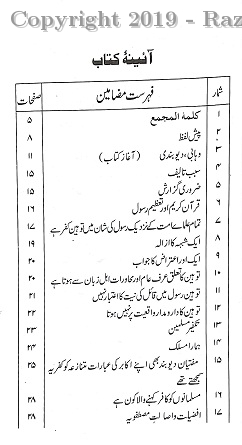 Copyright 2019 - Raz
آئینۂ کتاب
شمار فہرست مضامین صفحات
۱ کلمۃ المجمع ۵
۲ پیش لفظ ۸
۳ وہابی، دیوبندی (آغاز کتاب) ۱۱
۴ سبب تالیف ۱۵
۵ ضروری گزارش ۱۵
۶ قرآن کریم اور تعظیم رسول ۱۶
۷ تمام علماء امت کے نزدیک رسول کی شان میں توہین کفر ہے ۱۷
۸ ایک شبہ کا ازالہ ۱۹
۹ ایک اور اعتراض کا جواب ۲۰
۱۰ توہین کا تعلق عرف عام اور محاورات اہل زبان سے ہوتا ہے ۲۰
۱۱ توہین رسول میں قائل کی نیت کا اعتبار نہیں ۲۱
۱۲ توہین کا دارومدار واقعیت پر نہیں ہوتا ۲۲
۱۳ تکفیر مسلمین ۲۳
۱۴ ہمارا مسلک ۲۴
۱۵ مفتیان دیوبند بھی اپنے اکابر کی عبارات متنازعہ کو کفریہ ۲۵
سمجھتے تھے
۱۶ مسلمانوں کو کافر کہنے والا کون ہے ۲۸
۱۷ افضلیت واصالت مصطفویہ ۲۸